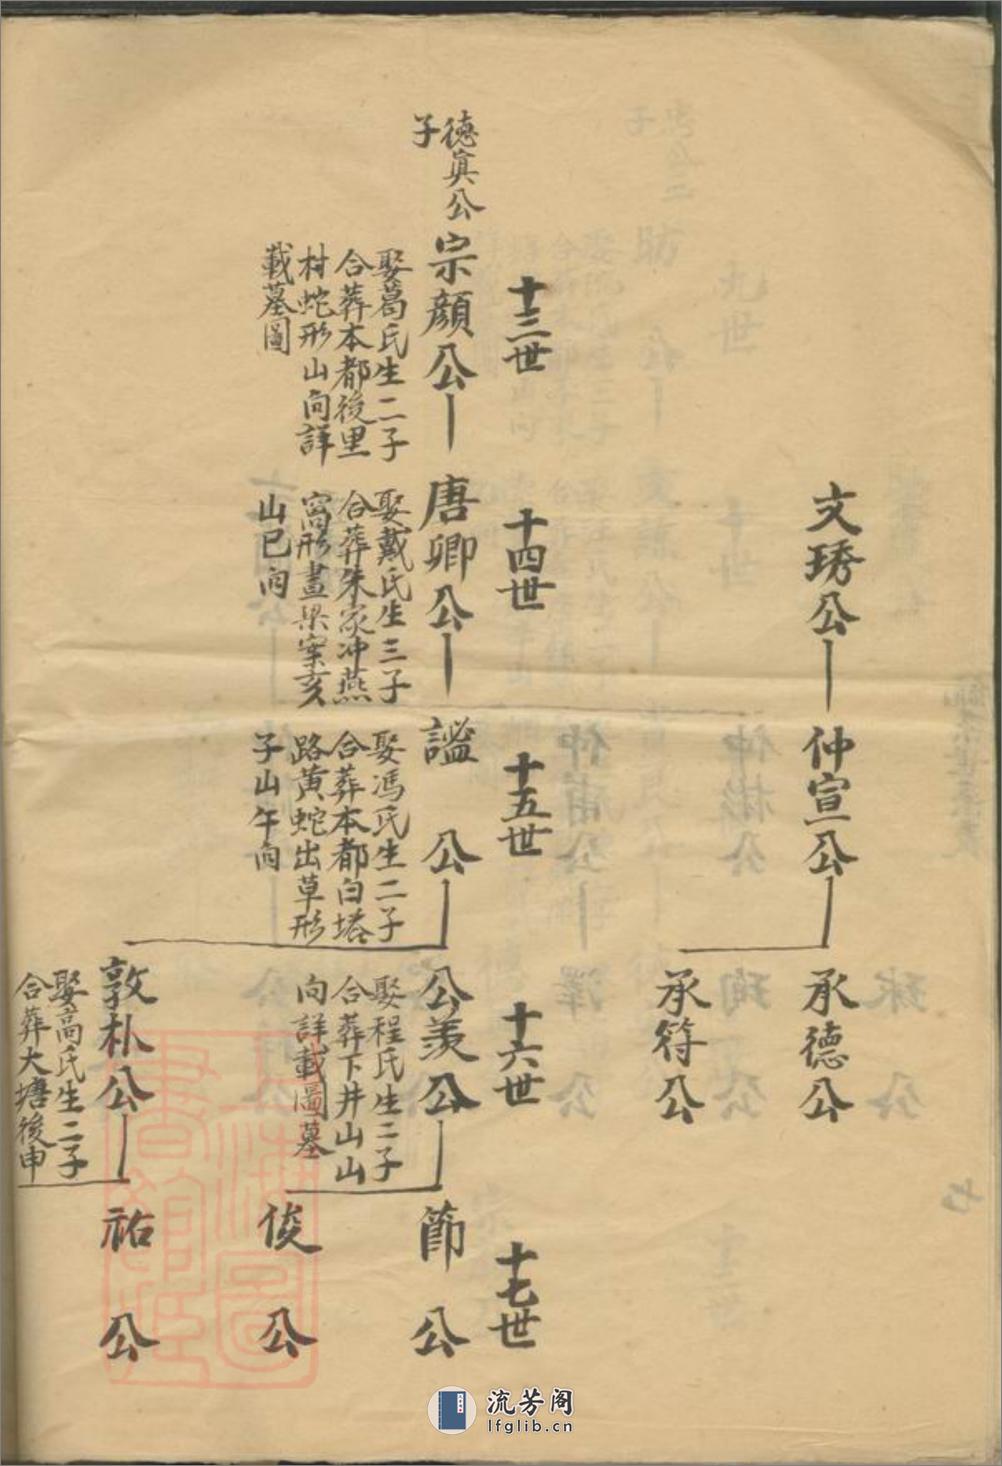 文琇公
仲宣公
承德公
承符公
十三世
十四世
十五世
十六世
十七世
德真公
子
宗顏公
娶葛氏生二子
合葬本都後里
村蛇形山向詳
載墓圖
唐卿公
娶戴氏生三子
合葬朱家冲燕
窩形畫梁案亥
山巳向
謐公
娶馮氏生二子
合葬本都白塔
路黄蛇出草形
子山午向
公羨公
娶程氏生二子
合葬下井山山
向詳載圖墓
敦朴公
娶高氏生二子
合葬大塘後申
節公
俊公
祐公
流芳阁
lfglib.cn